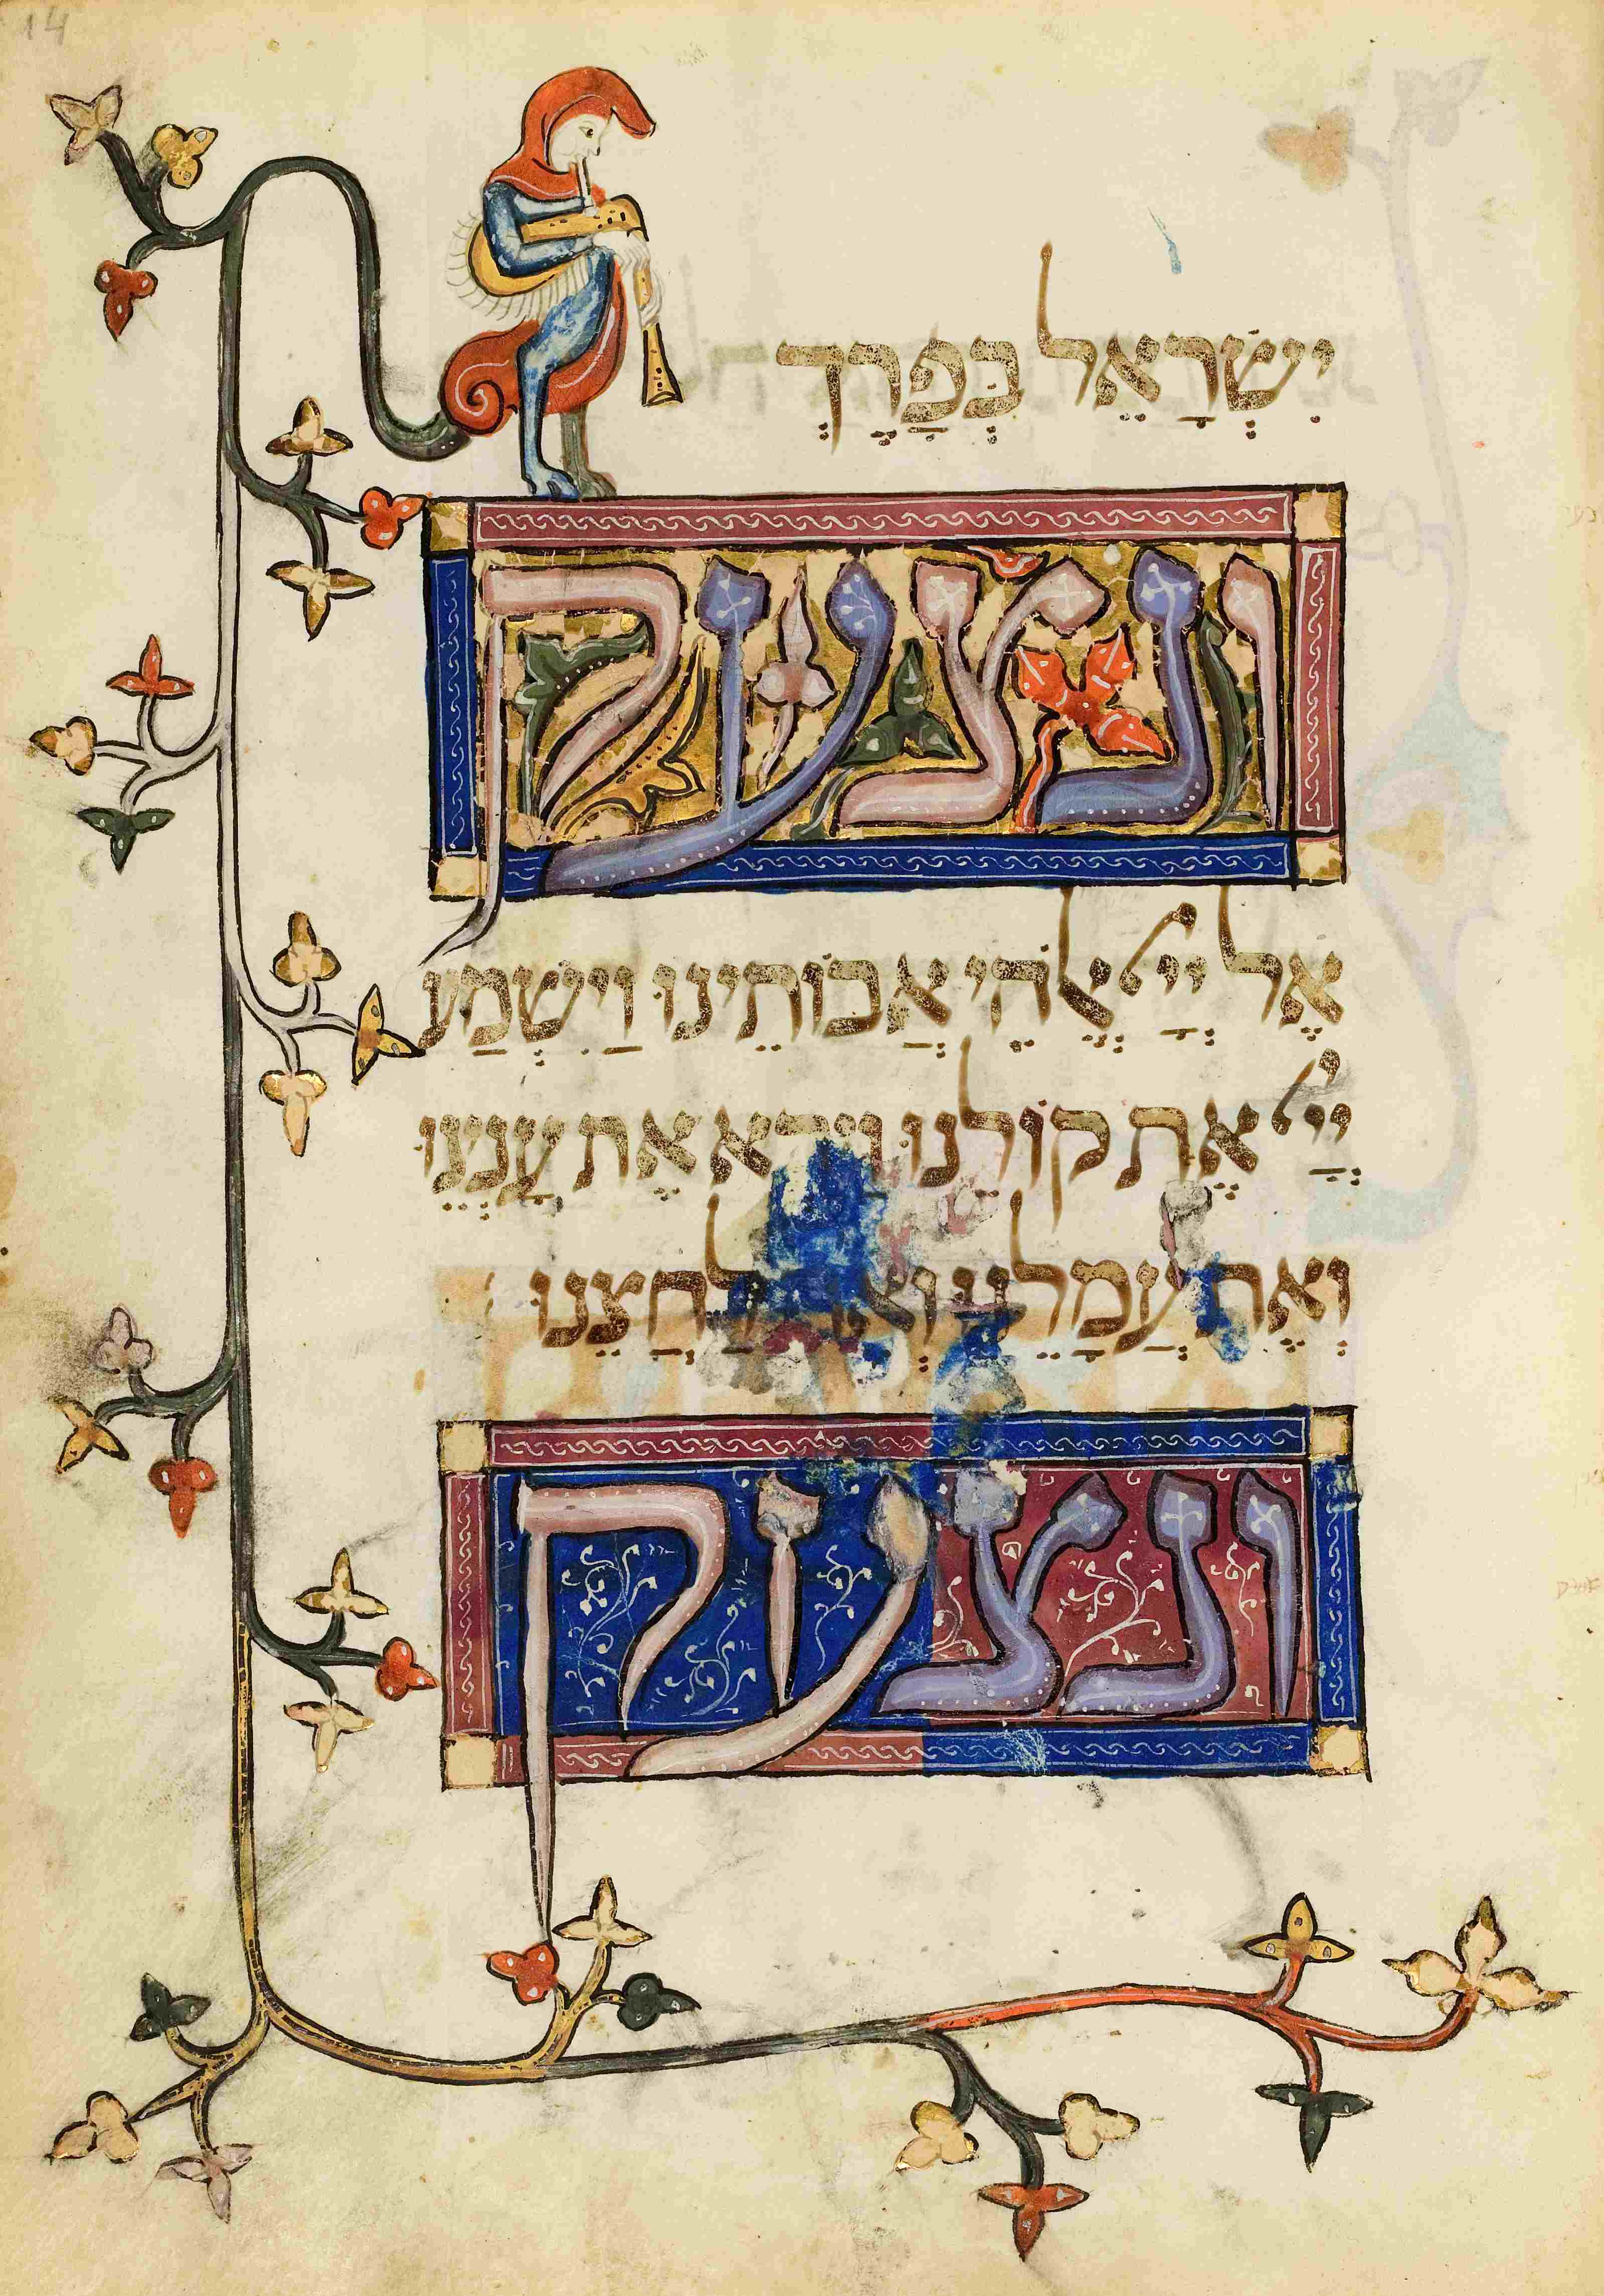 14
יִשְׂרָאֵל בְּפָרֶךְ
ונצעק
אֶל יְיָ אֱלֹהֵי אֲבוֹתֵינוּ וַיִּשְׁמַע
יְיָ אֶת קוֹלֵנוּ וַיַּרְא אֶת עָנְיֵנוּ
וְאֶת עֲמָלֵנוּ וְאֶת לַחֲצֵנוּ
ונצעק